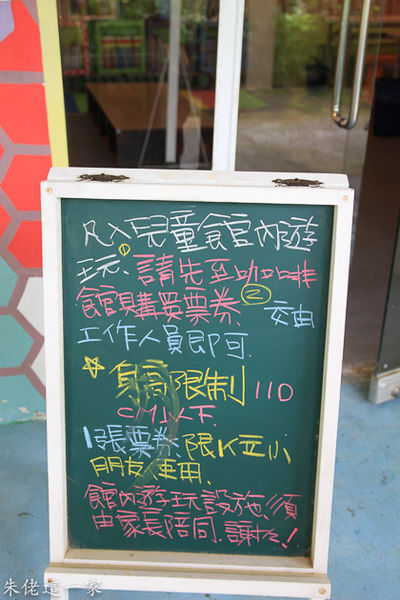 凡入兒童館內遊
玩、①請先至咖啡
館購買票券② 交由
工作人員即可.
☆身高限制110
CM以下
1張票券限1位小
朋友使用.
館內遊玩設施,須
由家長陪同.謝謝!
朱佬這一家